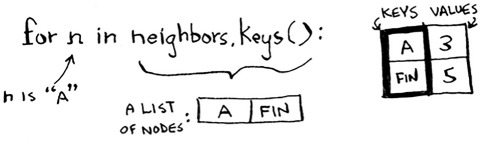 for n in neighbors.keys():
n is "A"
A LIST
OF NODES: A FIN
KEYS VALUES
A 3
FIN 5